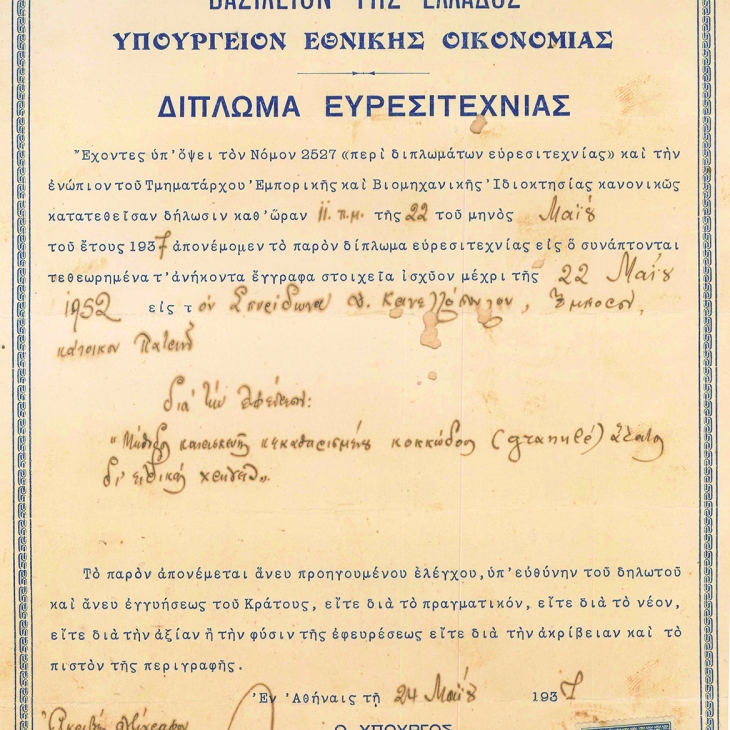 ΒΑΣΙΛΕΙΟΝ ΤΗΣ ΕΛΛΑΔΟΣ
ΥΠΟΥΡΓΕΙΟΝ ΕΘΝΙΚΗΣ ΟΙΚΟΝΟΜΙΑΣ
ΔΙΠΛΩΜΑ ΕΥΡΕΣΙΤΕΧΝΙΑΣ
Ἔχοντες ὑπ' ὄψει τὸν Νόμον 2527 «περὶ διπλωμάτων εὑρεσιτεχνίας» καὶ τὴν
ἐνώπιον τοῦ Τμηματάρχου Ἐμπορικῆς καὶ Βιομηχανικῆς Ἰδιοκτησίας κανονικῶς
κατατεθεῖσαν δήλωσιν καθ' ὥραν 11 π.μ. τῆς 22 τοῦ μηνὸς Μαΐου
τοῦ ἔτους 1937 ἀπονέμομεν τὸ παρὸν δίπλωμα εὑρεσιτεχνίας εἰς ὃ συνάπτονται
τεθεωρημένα τ' ἀνήκοντα ἔγγραφα στοιχεῖα ἰσχῦον μέχρι τῆς 22 Μαΐου
1952 εἰς τὸν Σπυρίδωνα Κανελλόπουλον, Ἔμπορον,
κάτοικον Πατρῶν
διὰ τὴν ἐφεύρεσιν:
«Μέθοδος κατασκευῆς κεκαθαρισμένου κοκκώδους (granulé) ἅλατος
δι' εἰδικὰς χρήσεις».
Τὸ παρὸν ἀπονέμεται ἄνευ προηγουμένου ἐλέγχου, ὑπ' εὐθύνην τοῦ δηλωτοῦ
καὶ ἄνευ ἐγγυήσεως τοῦ Κράτους, εἴτε διὰ τὸ πραγματικόν, εἴτε διὰ τὸ νέον,
εἴτε διὰ τὴν ἀξίαν ἢ τὴν φύσιν τῆς ἐφευρέσεως εἴτε διὰ τὴν ἀκρίβειαν καὶ τὸ
πιστὸν τῆς περιγραφῆς.
Ἐν Ἀθήναις τῇ 24 Μαΐου 1937
Ἀκριβὲς Ἀντίγραφον Ο ΥΠΟΥΡΓΟΣ